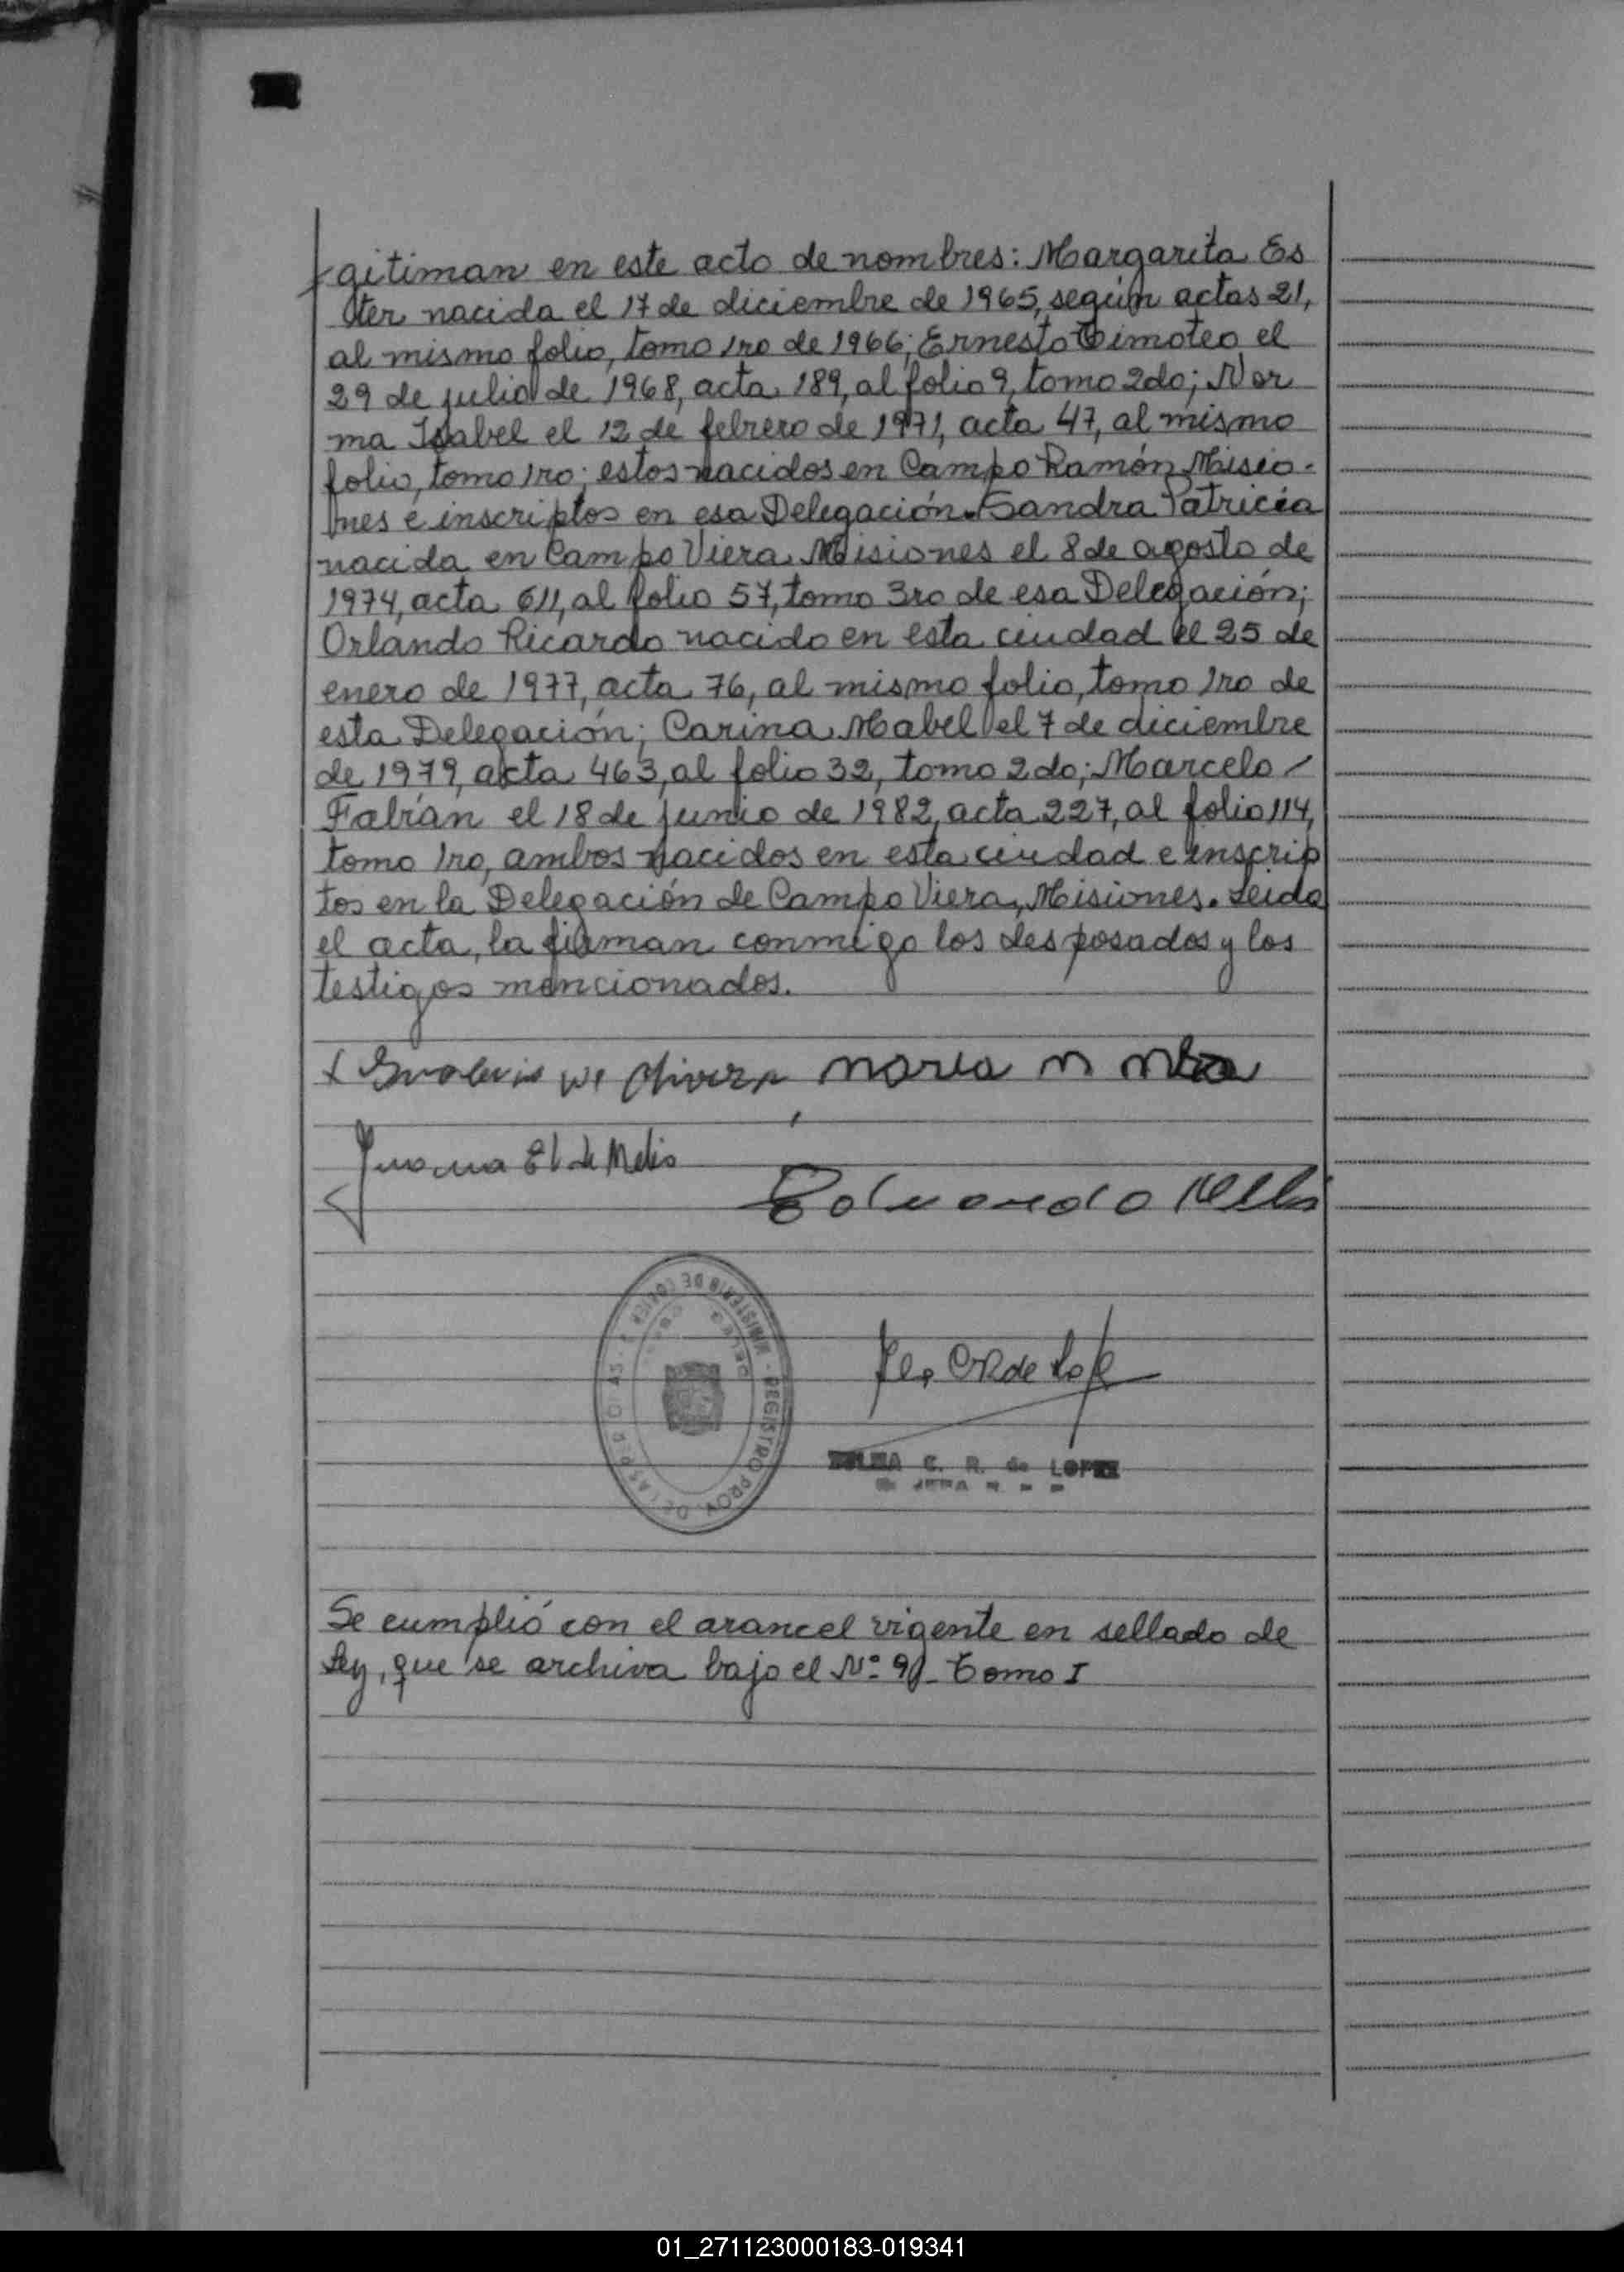 gitiman en este acto de nombres: Margarita Es
ter nacida el 17 de diciembre de 1965, según actas 21,
al mismo folio, tomo 1ro de 1966; Ernesto Timoteo el
29 de julio de 1968, acta 189, al folio 9, tomo 2do; Nor
ma Isabel el 12 de febrero de 1971, acta 47, al mismo
folio, tomo 1ro; estos nacidos en Campo Ramón Misio-
nes e inscriptos en esa Delegación. Sandra Patricia
nacida en Campo Viera Misiones el 8 de agosto de
1974, acta 611, al folio 57, tomo 3ro de esa Delegación;
Orlando Ricardo nacido en esta ciudad el 25 de
enero de 1977, acta 76, al mismo folio, tomo 1ro de
esta Delegación; Carina Mabel el 7 de diciembre
de 1979, acta 463, al folio 32, tomo 2do; Marcelo
Fabián el 18 de junio de 1982, acta 227, al folio 114,
tomo 1ro, ambos nacidos en esta ciudad e inscrip
tos en la Delegación de Campo Viera, Misiones. Leida
el acta, la firman conmigo los desposados y los
testigos mencionados.
maria m
El de Melo
Eduardo
MINISTERIO DE - REGISTRO PROV. DE LAS
C. R. de LOPEZ
JEFA
Se cumplió con el arancel vigente en sellado de
Ley, que se archiva bajo el Nº Tomo I
01_271123000183-019341